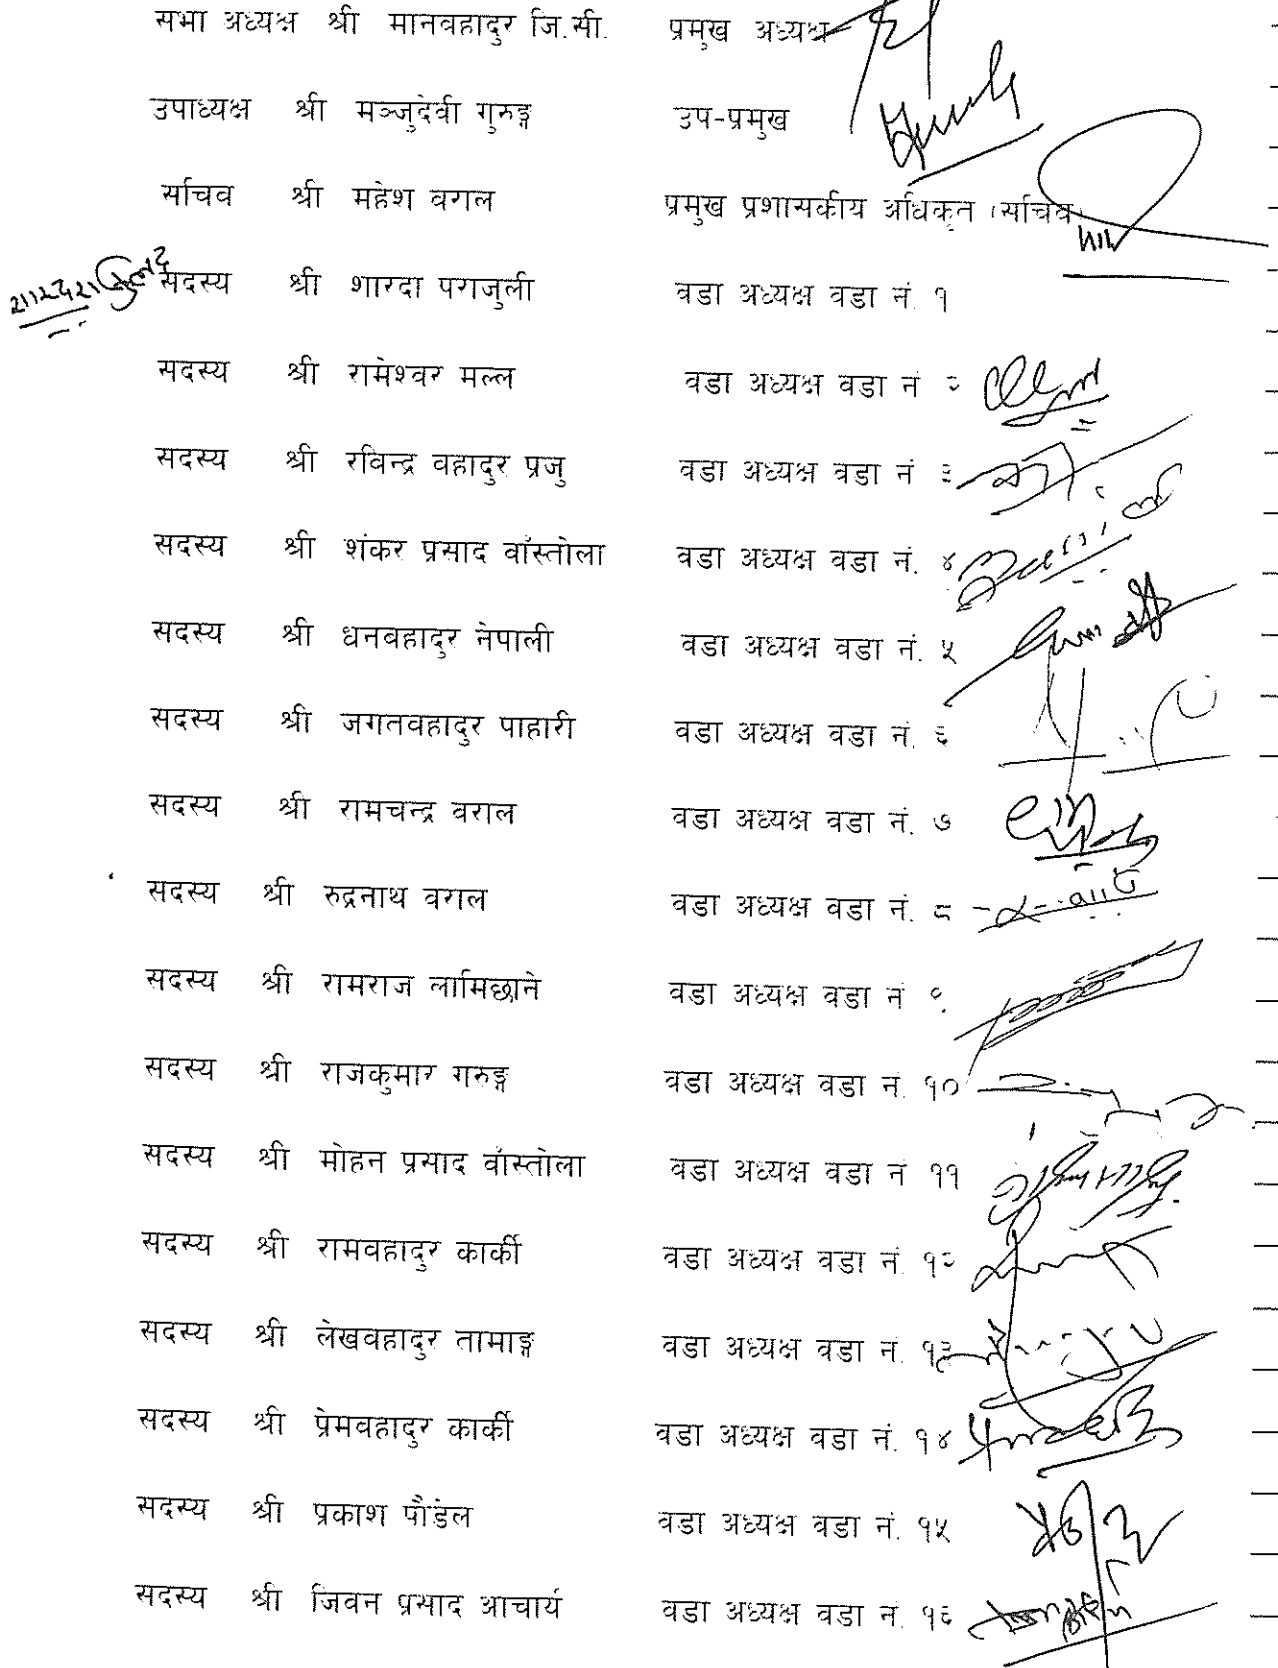 सभा अध्यक्ष श्री मानवहादुर जि.सी. प्रमुख अध्यक्ष
उपाध्यक्ष श्री मञ्जुदेवी गुरुङ्ग उप-प्रमुख
सचिव श्री महेश वराल प्रमुख प्रशासकीय अधिकृत (सचिव)
सदस्य श्री शारदा पराजुली वडा अध्यक्ष वडा नं. १
सदस्य श्री रामेश्वर मल्ल वडा अध्यक्ष वडा नं २
सदस्य श्री रविन्द्र वहादुर प्रजु वडा अध्यक्ष वडा नं ३
सदस्य श्री शंकर प्रसाद वाँस्तोला वडा अध्यक्ष वडा नं. ४
सदस्य श्री धनबहादुर नेपाली वडा अध्यक्ष वडा नं. ५
सदस्य श्री जगतवहादुर पाहारी वडा अध्यक्ष वडा नं. ६
सदस्य श्री रामचन्द्र वराल वडा अध्यक्ष वडा नं. ७
सदस्य श्री रुद्रनाथ वराल वडा अध्यक्ष वडा नं. ८
सदस्य श्री रामराज लामिछाने वडा अध्यक्ष वडा नं ९
सदस्य श्री राजकुमार गरुङ्ग वडा अध्यक्ष वडा नं. १०
सदस्य श्री मोहन प्रसाद वाँस्तोला वडा अध्यक्ष वडा नं ११
सदस्य श्री रामवहादुर कार्की वडा अध्यक्ष वडा नं. १२
सदस्य श्री लेखवहादुर तामाङ्ग वडा अध्यक्ष वडा नं. १३
सदस्य श्री प्रेमवहादुर कार्की वडा अध्यक्ष वडा नं. १४
सदस्य श्री प्रकाश पौडेल वडा अध्यक्ष वडा नं. १५
सदस्य श्री जिवन प्रसाद आचार्य वडा अध्यक्ष वडा नं. १६